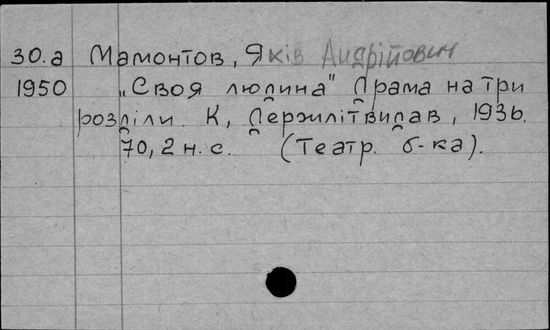 30.а Мамонтов, Яків Андрійович
1950 „Своя людина" Драма на три
розділи. К, Держлітвидав, 1936.
70, 2 н. с. (Театр. б-ка).